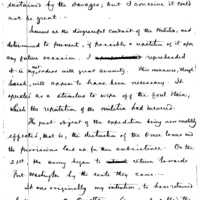 sustained by the Savages, but I conceive it could
not be great —
incensed at the disgraceful conduct of the Militia, and
determined to prevent, if possible a repetition of it upon
any future occasion, I reprehended
it in my orders with great severity. This measure, though
harsh, will appear to have been necessary. It
operated as a stimulus to wipe off the foul stain,
which the reputation of the militia had incurred.
The great object of the expedition being now mostly
effected, that is, the destruction of the Omee towns and
the provisions laid up for their subsistence. On the
21st. the army began to return towards
Fort Washington by the route they came —
It was originally my intention, to have returned